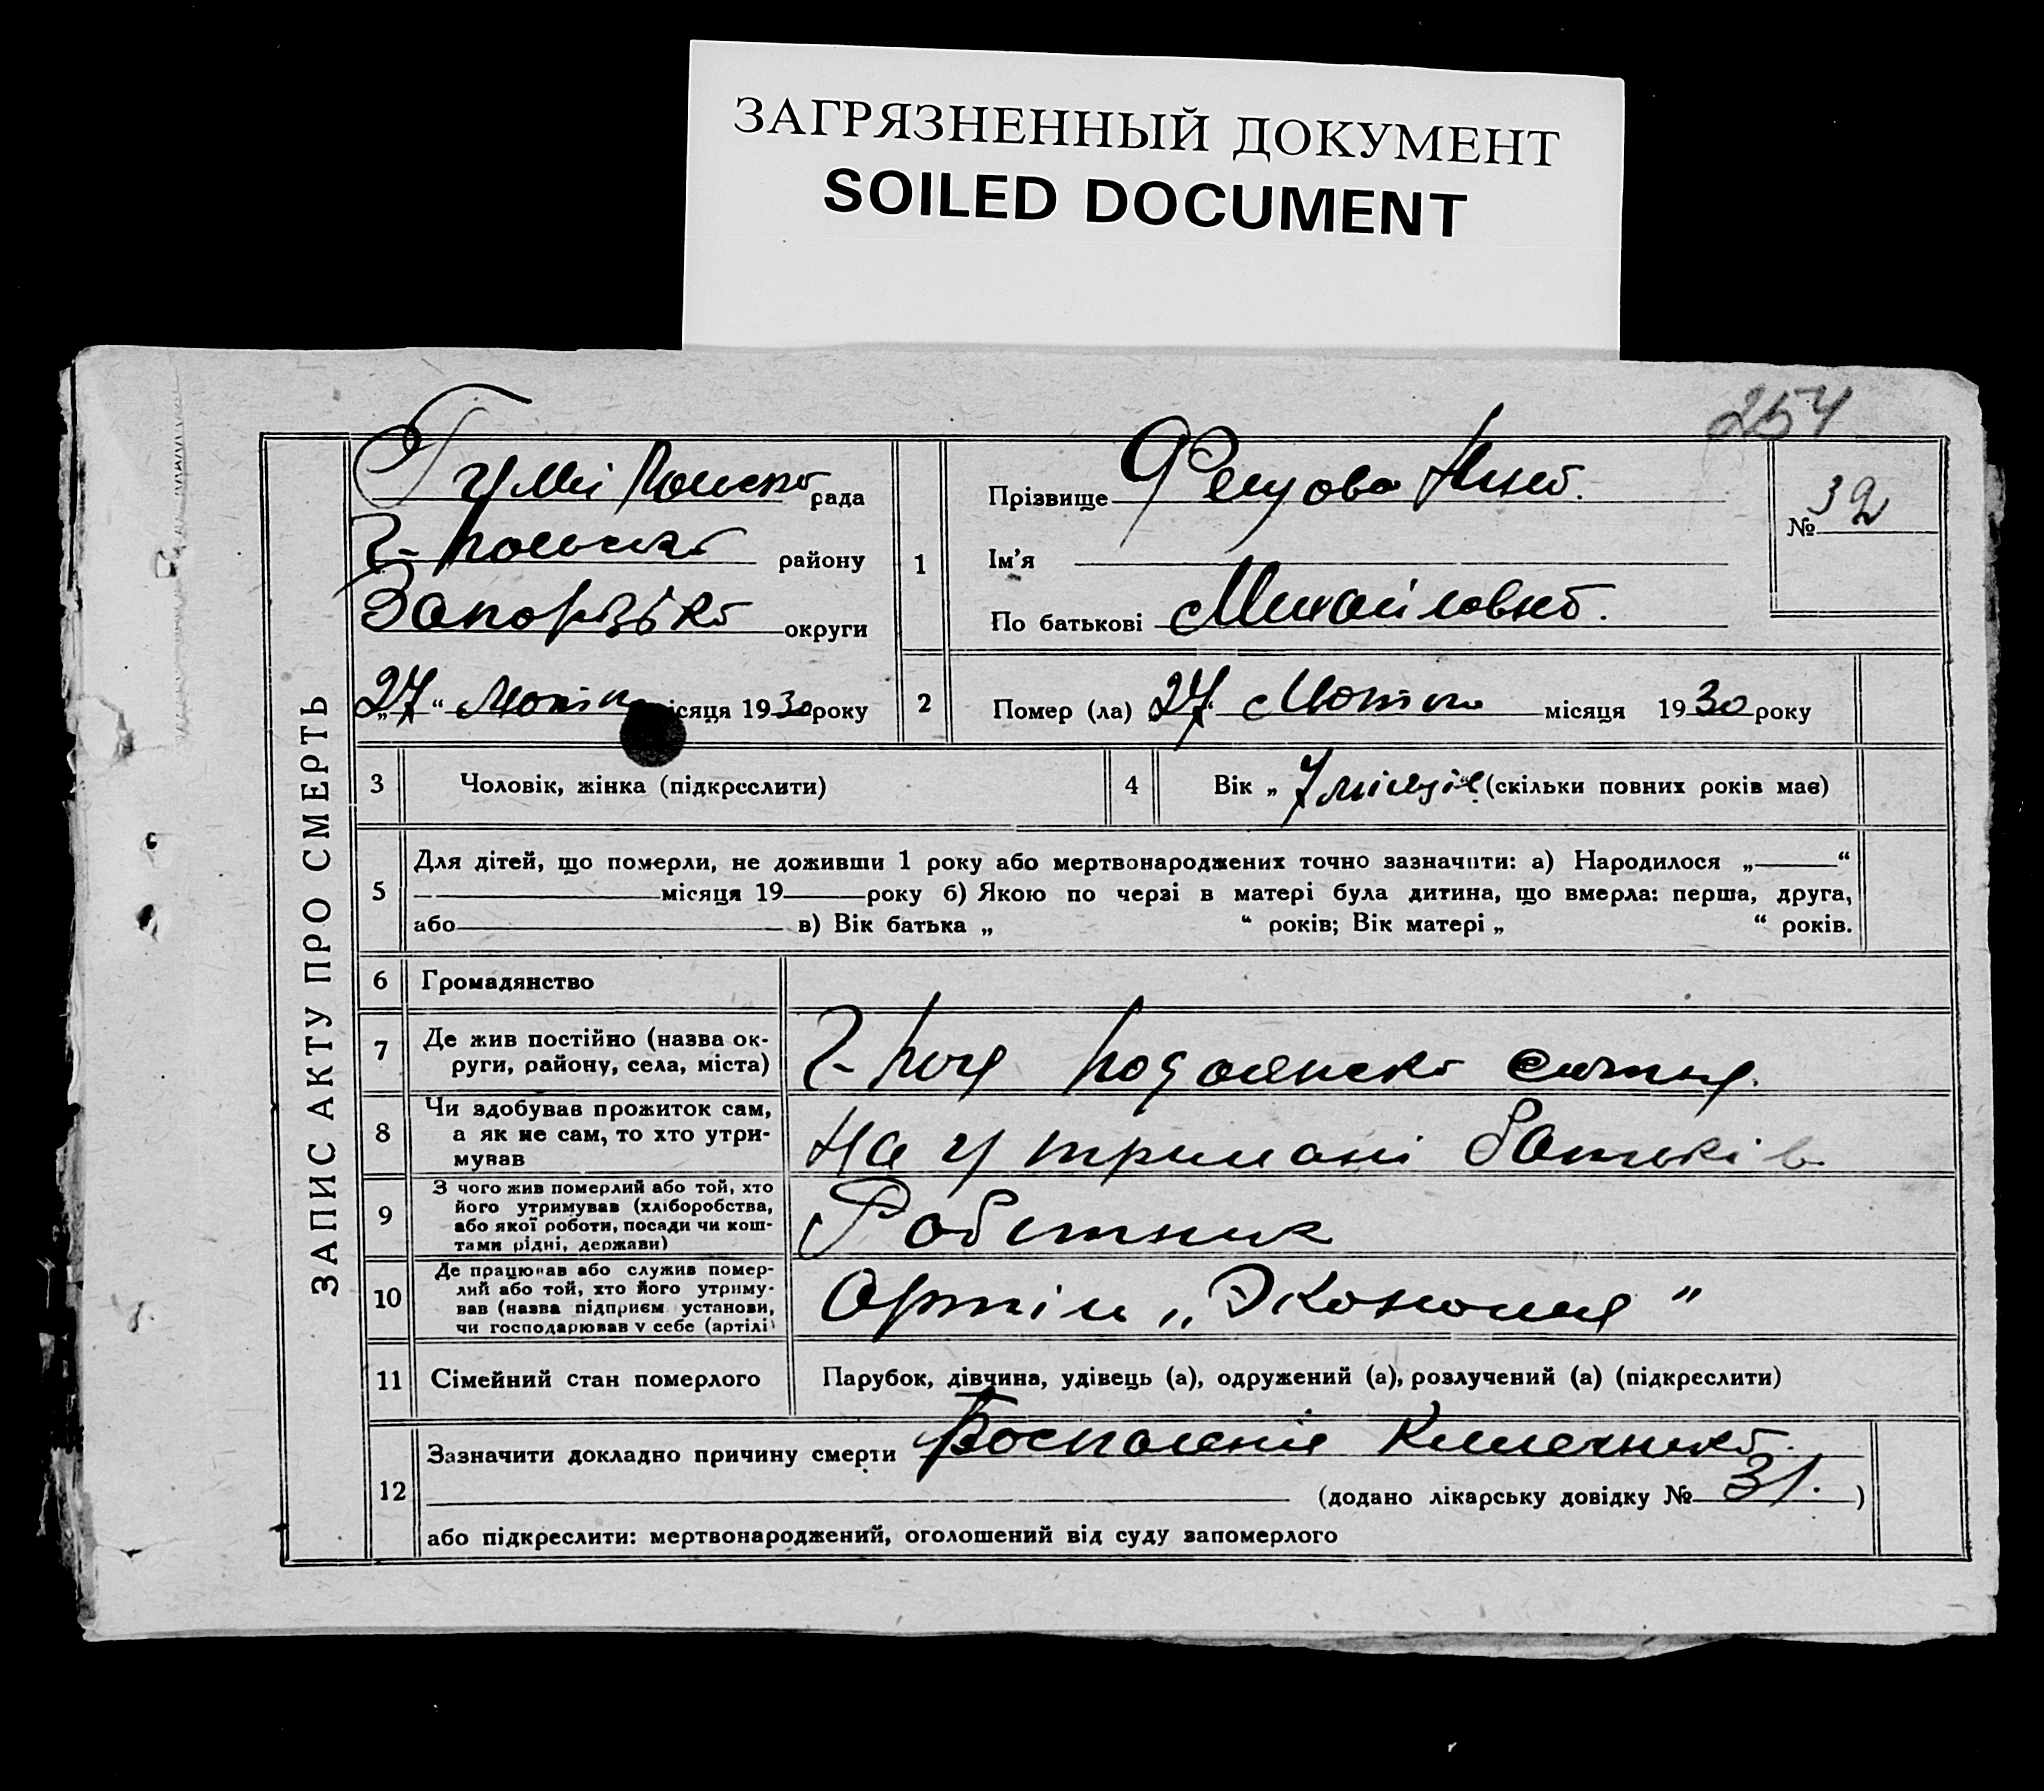 ЗАГРЯЗНЕННЫЙ ДОКУМЕНТ
SOILED DOCUMENT
254
ЗАПИС АКТУ ПРО СМЕРТЬ
рада
району
Запорізька округи
„27“ Лютня місяця 1930 року
1
Прізвище Нина.
Ім'я
По батькові Михайловна.
№ 32
2
Помер (ла) 27. Лютня місяця 1930 року
3 Чоловік, жінка (підкреслити)
4 Вік „7 місяців (скільки повних років має)
5
Для дітей, що померли, не доживши 1 року або мертвонароджених точно зазначити: а) Народилося „ “
місяця 19 року б) Якою по черзі в матері була дитина, що вмерла: перша, друга,
або в) Вік батька „ “ років; Вік матері „ “ років.
6 Громадянство
7
Де жив постійно (назва ок-
руги, району, села, міста)
8
Чи здобував прожиток сам,
а як не сам, то хто утри-
мував
На утримані батьків
9
З чого жив померлий або той, хто
його утримував (хліборобства,
або якої роботи, посади чи кош-
тами рідні, держави)
Робітник
10
Де працював або служив помер-
лий або той, хто його утриму-
вав (назва підприєм. установи,
чи господарював у себе (артілі)
Артіль „Экономия"
11 Сімейний стан померлого
Парубок, дівчина, удівець (а), одружений (а), розлучений (а) (підкреслити)
12
Зазначити докладно причину смерти Воспаленія Кишечника.
(додано лікарську довідку № 31. )
або підкреслити: мертвонароджений, оголошений від суду запомерлого